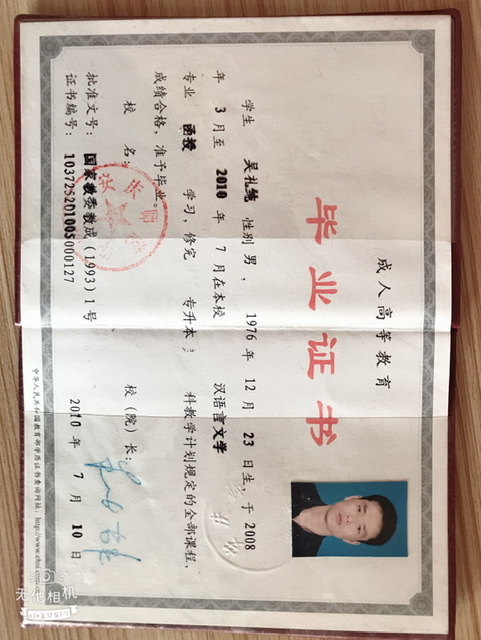 成人高等教育
毕业证书
学生 吴礼纯 性别 男， 1976 年 12 月 23 日生，于 2008
年 3 月至 2010 年 7 月在本校 汉语言文学
专业 函授 学习，修完 专升本 科教学计划规定的全部课程，
成绩合格，准予毕业。
校 名： 校（院）长：
批准文号： 国家教委教成（1993）1 号
证书编号： 103725201005000127 2010 年 7 月 10 日
中华人民共和国教育部学历证书查询网址：http://www.chsi.com.cn
无他相机